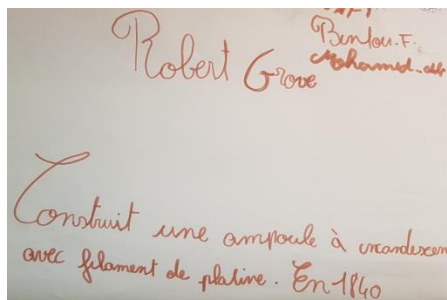 Robert Grove
Bintou.F.
Mohamed
Construit une ampoule à incandescen
avec filament de platine. En 1840